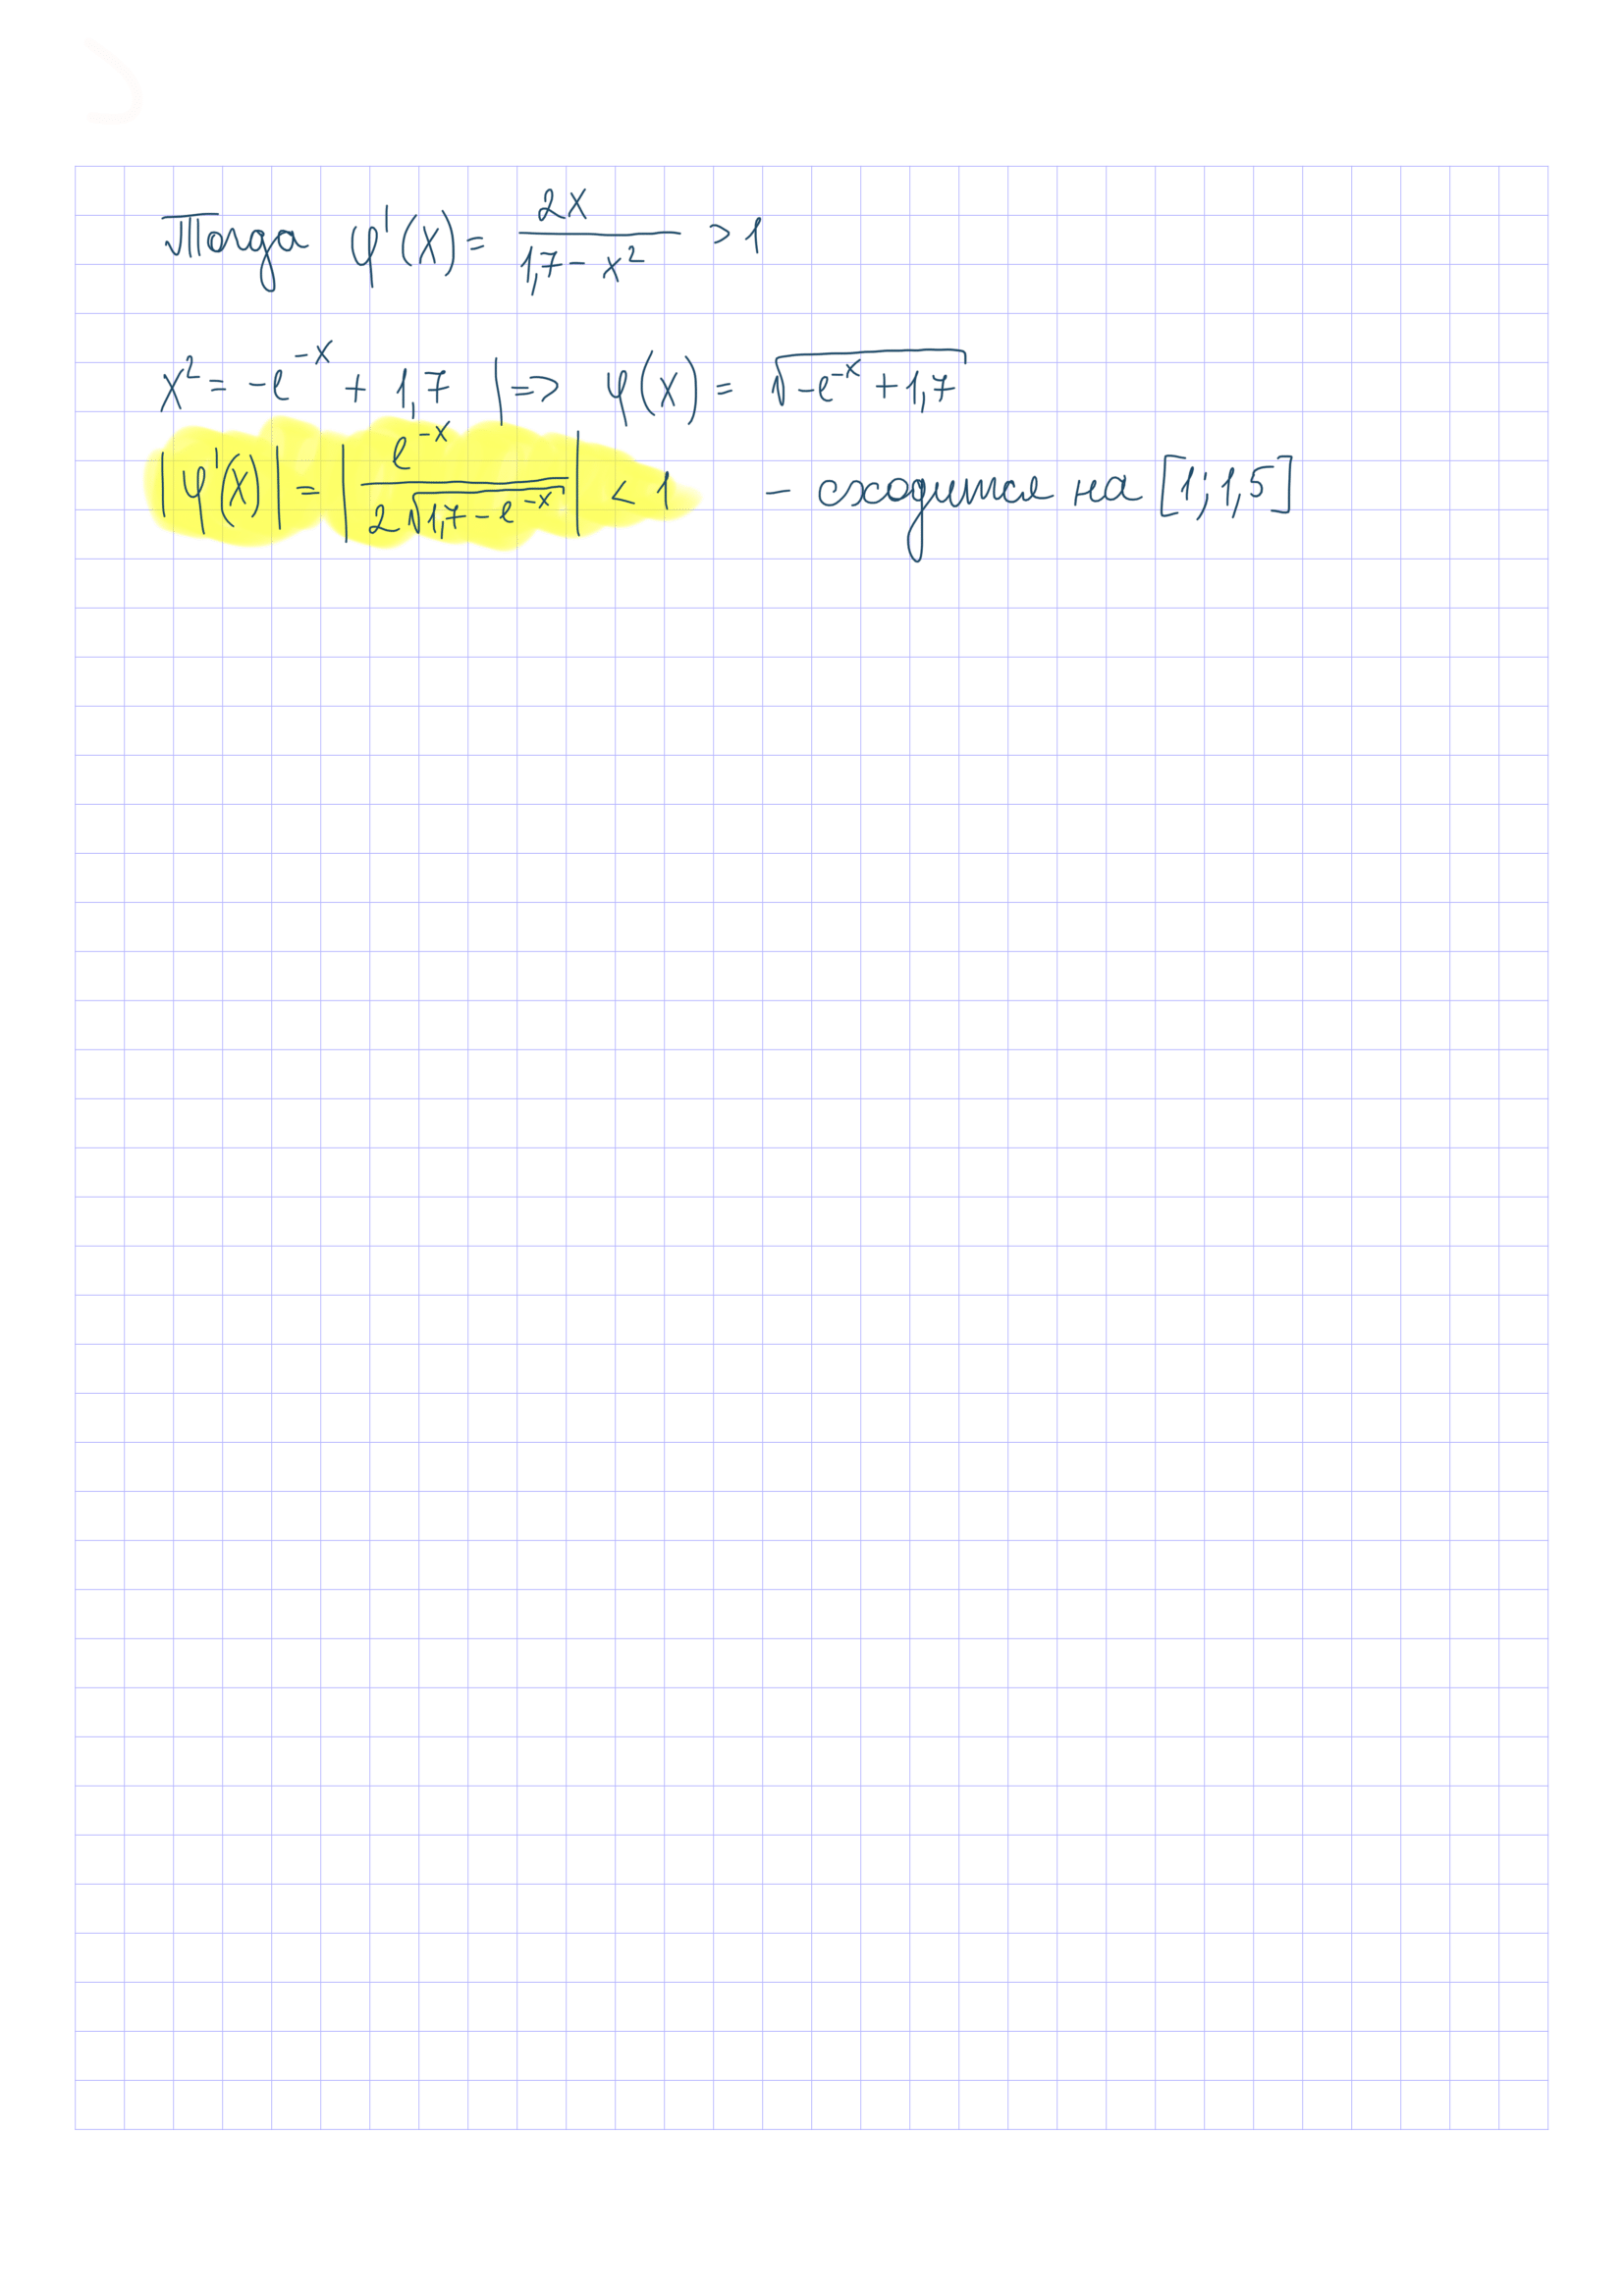 Тогда φ'(x) = 2x / (1,7 - x²) > 1
x² = -e^(-x) + 1,7 |=> φ(x) = √(-e^(-x) + 1,7)
|φ'(x)| = |e^(-x) / (2√(1,7 - e^(-x)))| < 1 - сходится на [1; 1,5]